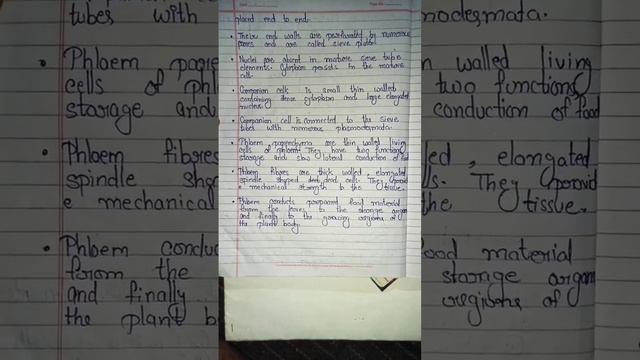 placed end to end.
• Their end walls are perforated by numerous
pores and are called sieve plates.
• Nuclei are absent in mature sieve tube
elements. Cytoplasm persists in the mature
cell.
• Companion cell is small thin walled
containing dense cytoplasm and large elongated
nucleus.
• Companion cell is connected to the sieve
tubes with numerous plasmodesmata.
• Phloem parenchyma are thin walled living
cells of phloem. They have two functions
storage and slow lateral conduction of food
• Phloem fibres are thick walled, elongated
spindle shaped dead cells. They provid
e mechanical strength to the tissue.
• Phloem conducts prepared food material
from the leaves to the storage organ
and finally to the growing regions of
the plant body.
tubes with
• Phloem pare
cells of phl
storage and
• Phloem fibres
spindle shap
e mechanical
• Phloem conduc
from the
and finally
the plant b
modesmata.
n walled living
two functions
conduction of food
led, elongated
ls. They provid
the tissue.
ood material
storage organ
regions of